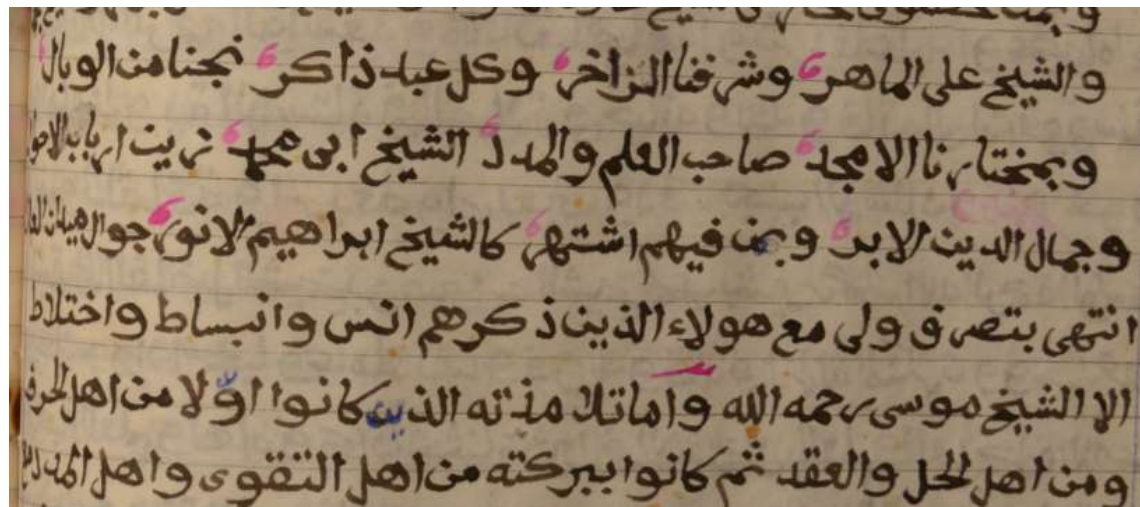 والشيخ على الماهر وشرفنا الزاخر وكل عبد ذاكر نجنا من الوبال
وبمختارنا الامجد صاحب العلم والمدد الشيخ ابى محمد زين ارباب
وجمال الدين الابر وبمن فيهم اشتهر كالشيخ ابراهيم الانور جوال ميدان
انتهى بتصرف ولى مع هولاء الذين ذكرهم انس وانبساط واختلاط
الا الشيخ موسى رحمه الله واما تلامذته الذين كانوا اوّلا من اهل الحرف
ومن اهل الحل والعقد ثم كانوا ببركته من اهل التقوى واهل